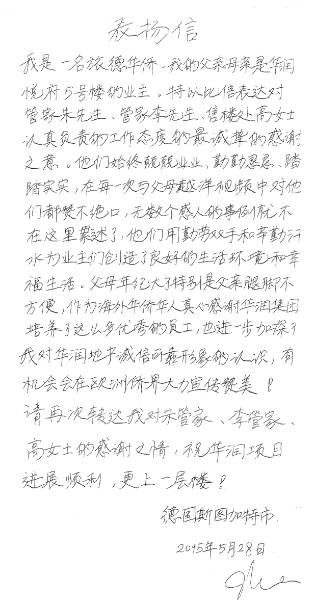 表扬信
我是一名旅德华侨、我的父亲母亲是华润
悦府5号楼的业主。特以此信表达对
管家朱先生、管家李先生、售楼处高女士
认真负责的工作态度的最诚挚的感谢
之意。他们始终兢兢业业、勤勤恳恳、踏
踏实实,在每一次与父母越洋视频中对他
们都赞不绝口,无数个感人的事例就不
在这里累述了,他们用勤劳双手和辛勤汗
水为业主们创造了良好的生活环境和幸
福生活。父母年纪大了特别是父亲腿脚不
方便,作为海外华侨华人真心感谢华润集团
培养了这么多优秀的员工,也进一步加深了
我对华润地产诚信品牌形象的认识,有
机会会在欧洲侨界大力宣传赞美!
请再次转达我对朱管家、李管家、
高女士的感谢之情,祝华润项目
进展顺利,更上一层楼!
德国斯图加特市
2015年5月28日